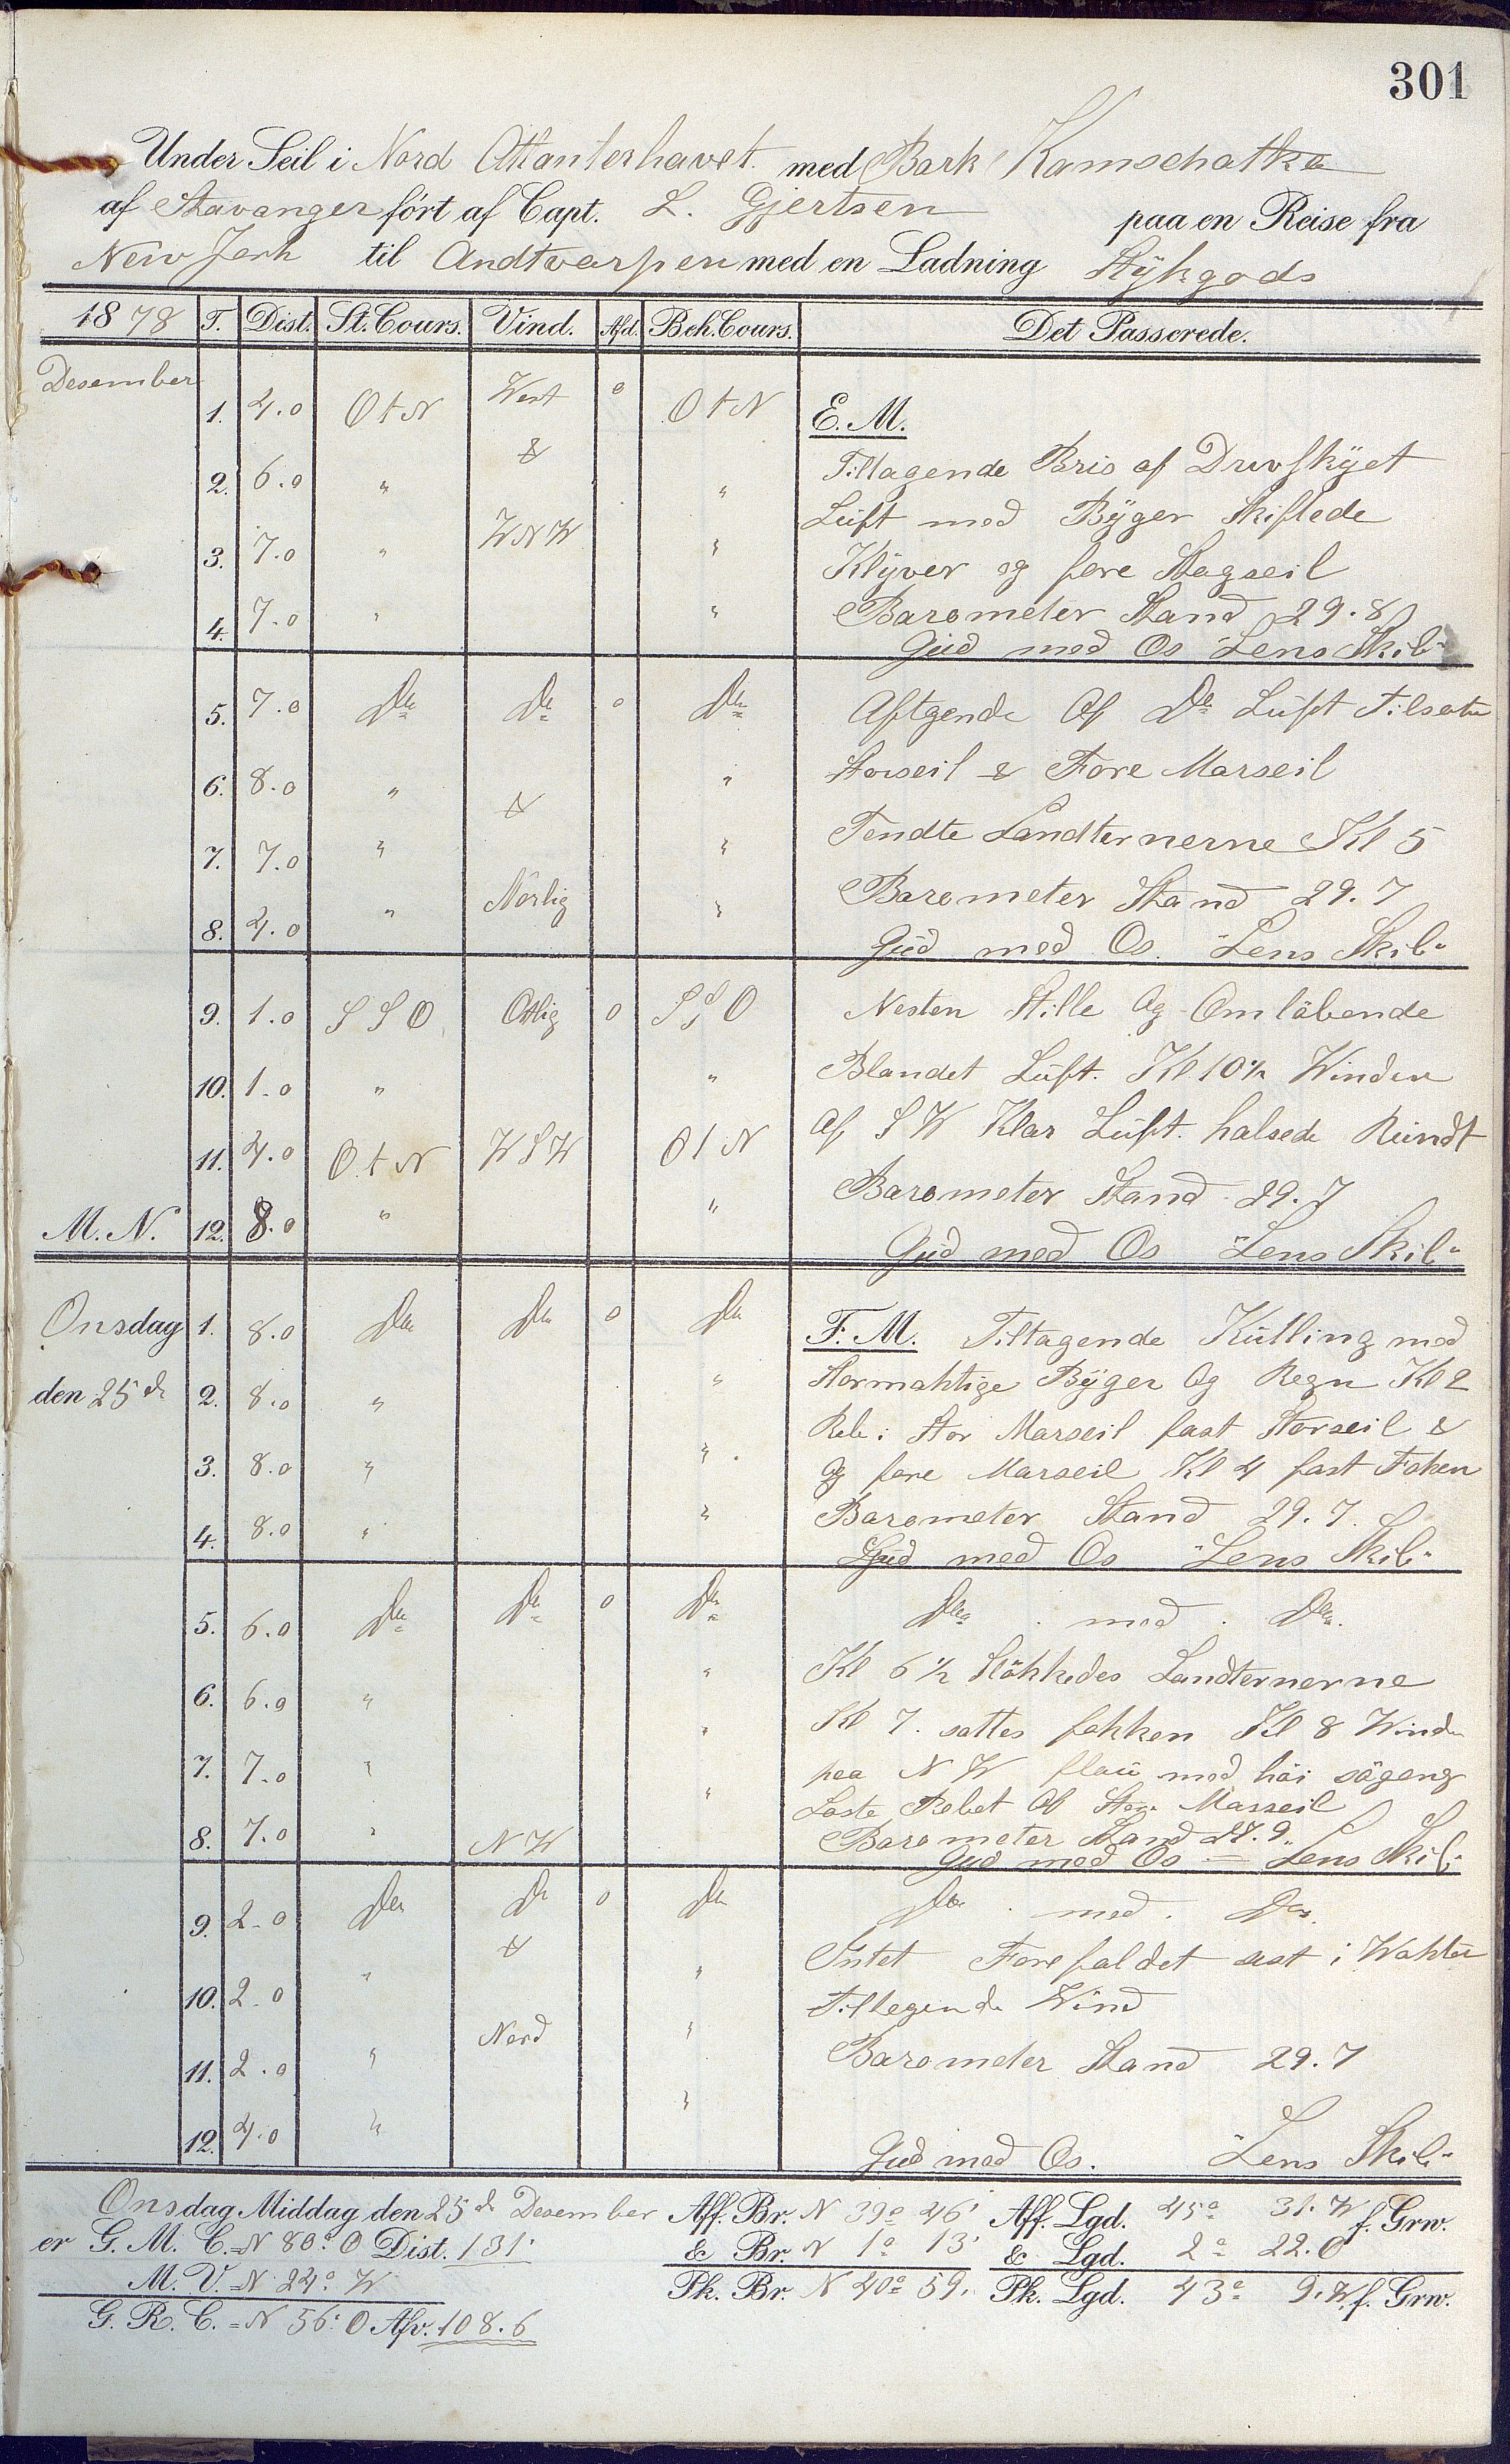 301
Under Seil i Nord Atlanterhavet med Bark Kamschatka
af Stavanger fört af Capt. L. Gjertsen paa en Reise fra
New Jork til Andtverpen med en Ladning Stÿkgods
1878 T. Dist. St. Cours. Vind. Afd. Beh. Cours. Det Passerede.
Desember
1. 4.0 O t N West 0 O t N E. M.
2. 6.0 " & " Tiltagende Bris af Drivskÿet
Lüft med Bÿger Skiftede
3. 7.0 " WNW " Klÿver og fore Stagseil
4. 7.0 " " Barometer Stand 29.8
Gud med Os Lens Skib"
5. 7.0 Do Do 0 Do Aftgende Af Do Lüft Tilsatte
6. 8.0 " & " Storseil & Fore Marseil
7. 7.0 " " Tendte Landternerne Kl 5
8. 4.0 " Norlig " Barometer Stand 29.7
Güd med Os. Lens Skib"
9. 1.0 S S O Ostlig 0 S S O Nesten Stille Og Omlöbende
10. 1.0 " " Blandet Lüft. Kl 10½ Winden
11. 4.0 O t N W S W O t N Af S W Klar Lüft. halsede Rundt
Barometer Stand 29.7
M. N. 12. 8.0 " " Gud med Os Lens Skib"
Onsdag 1. 8.0 Do Do 0 Do F. M. Tiltagende Külling med
den 25de 2. 8.0 " " Stormahtige Bÿger Og Regn Kl 2
Reb i Stor Marseil fast Storseil &
3. 8.0 " " Og fore Marseil Kl 4 fast Foken
4. 8.0 " " Barometer Stand 29.7
Gud med Os Lens Skib"
5. 6.0 Do Do 0 Do Do med Do.
6. 6.0 " " Kl 6½ Slökkedes Landternerne
Kl 7. sattes fokken Kl 8 Winden
7. 7.0 " " paa N W flau med höi sögang
Loste Rebet Af Stor Marseil
8. 7.0 " N W " Barometer Stand
Gud med Os Lens Skib"
9. 2.0 Do Do 0 Do Do med. Do.
10. 2.0 " & " Intet Forefaldet i Wahten
Tiltegende Wind
11. 2.0 " Nord " Barometer Stand 29.7
12. 4.0 " " Gud med Os. Lens Skib"
Onsdag Middag den 25de Desember Aff. Br. N 39° 46' Aff. Lgd. 45° 31. W f. Grw.
er G. M. C. = N 80° O Dist. 131' & Br. N 1° 13' & Lgd. 2° 22. O
M. V. = N 24° W Pk. Br. N 40° 59' Pk. Lgd. 43° 9. W f. Grw.
G. R. C. = N 56° O Afv. 108.6